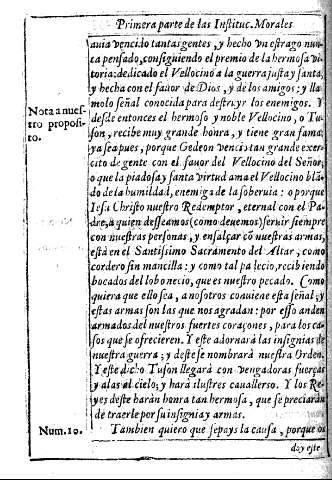 Primera parte de las Instituc. Morales
auia vencido tantas gentes, y hecho vn estrago nun-
ca pensado, consiguiendo el premio de la hermosa vi-
toria: dedicado el Vellocino a la guerra justa y santa,
y hecha con el fauor de Dios, y de los amigos; y lla-
molo señal conocida para destruyr los enemigos. Y
desde entonces el hermoso y noble Vellocino, o Tu-
son, recibe muy grande honra, y tiene gran fama,
ya sea pues, porque Gedeon vencio tan grande exer-
cito de gente con el fauor del Vellocino del Señor,
o que la piadosa y santa virtud ama el Vellocino blā-
do de la humildad, enemiga de la soberuia: o porque
Iesu Christo nuestro Redemptor, eternal con el Pa-
dre, a quien desseamos (como deuemos) seruir siempre
con nuestras personas, y ensalçar cō nuestras armas,
està en el Santissimo Sacramento del Altar, como
cordero sin mancilla: y como tal padecio, recibiendo
bocados del lobo necio, que es nuestro pecado. Como
quiera que ello sea, a nosotros conuiene esta señal; y
estas armas son las que nos agradan: por esso anden
armados del nuestros fuertes coraçones, para los ca-
sos que se ofrecieren. Y este adornarà las insignias de
nuestra guerra; y deste se nombrarà nuestra Orden.
Y este dicho Tuson llegarà con vengadoras fuerças
y alas al cielo; y harà ilustres cauallerso. Y los Re-
yes deste haràn honra tan hermosa, que se preciaràn
de traerle por su insignia y armas.
Tambien quiero que sepays la causa, porque os
doy este
Nota a nues-
tro proposi-
to.
Num. 10.